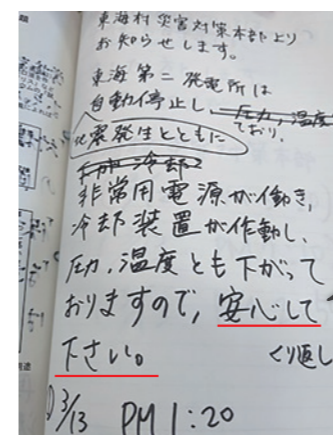 東海村災害対策本部より
お知らせします。
東海第二発電所は
自動停止し、圧力,温度
ており、
地震発生とともに
冷却
非常用電源が働き、
冷却装置が作動し、
圧力,温度とも下がって
おりますので、安心して
下さい。
くり返し
3/13 PM 1:20